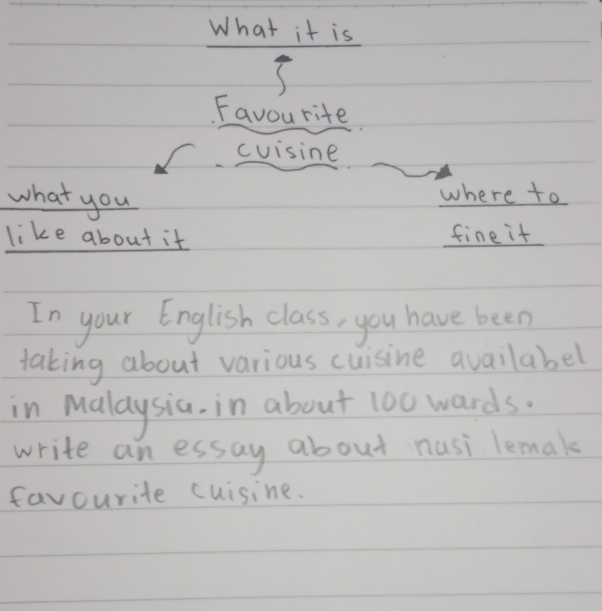 What it is
Favourite
cuisine
what you
like about it
where to
fine it
In your English class, you have been
taking about various cuisine availabel
in Malaysia. in about 100 wards.
write an essay about nasi lemak
favourite cuisine.